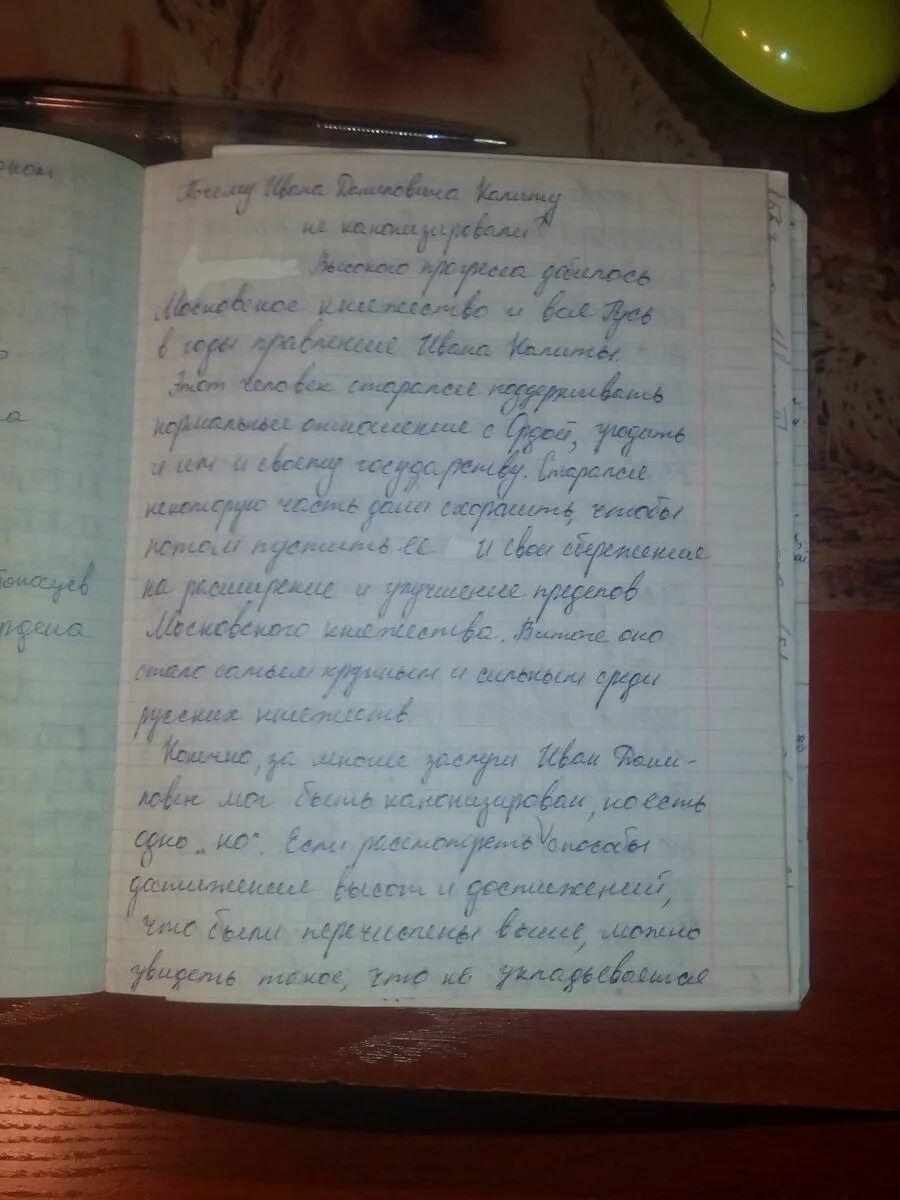 оном
Почему Ивана Даниловича Калиту
не канонизировали?
Высокого прогресса добилось
Московское княжество и вся Русь
в годы правление Ивана Калиты.
Этот человек старался поддерживать
нормальные отношение с Ордой, угодить
и им и своему государству. Старался
некоторую часть дани схоронить, чтобы
потом пустить её и свои сбережение
на расширение и улучшение пределов
Московского княжества. Витоге оно
стало самым крупным и сильным среди
русских княжеств.
Конечно, за многие заслуги Иван Дани-
лович мог быть канонизирован, но есть
одно „но". Если рассмотреть способы
достижения высот и достижений,
что были перечислены выше, можно
увидеть такое, что не укладывается